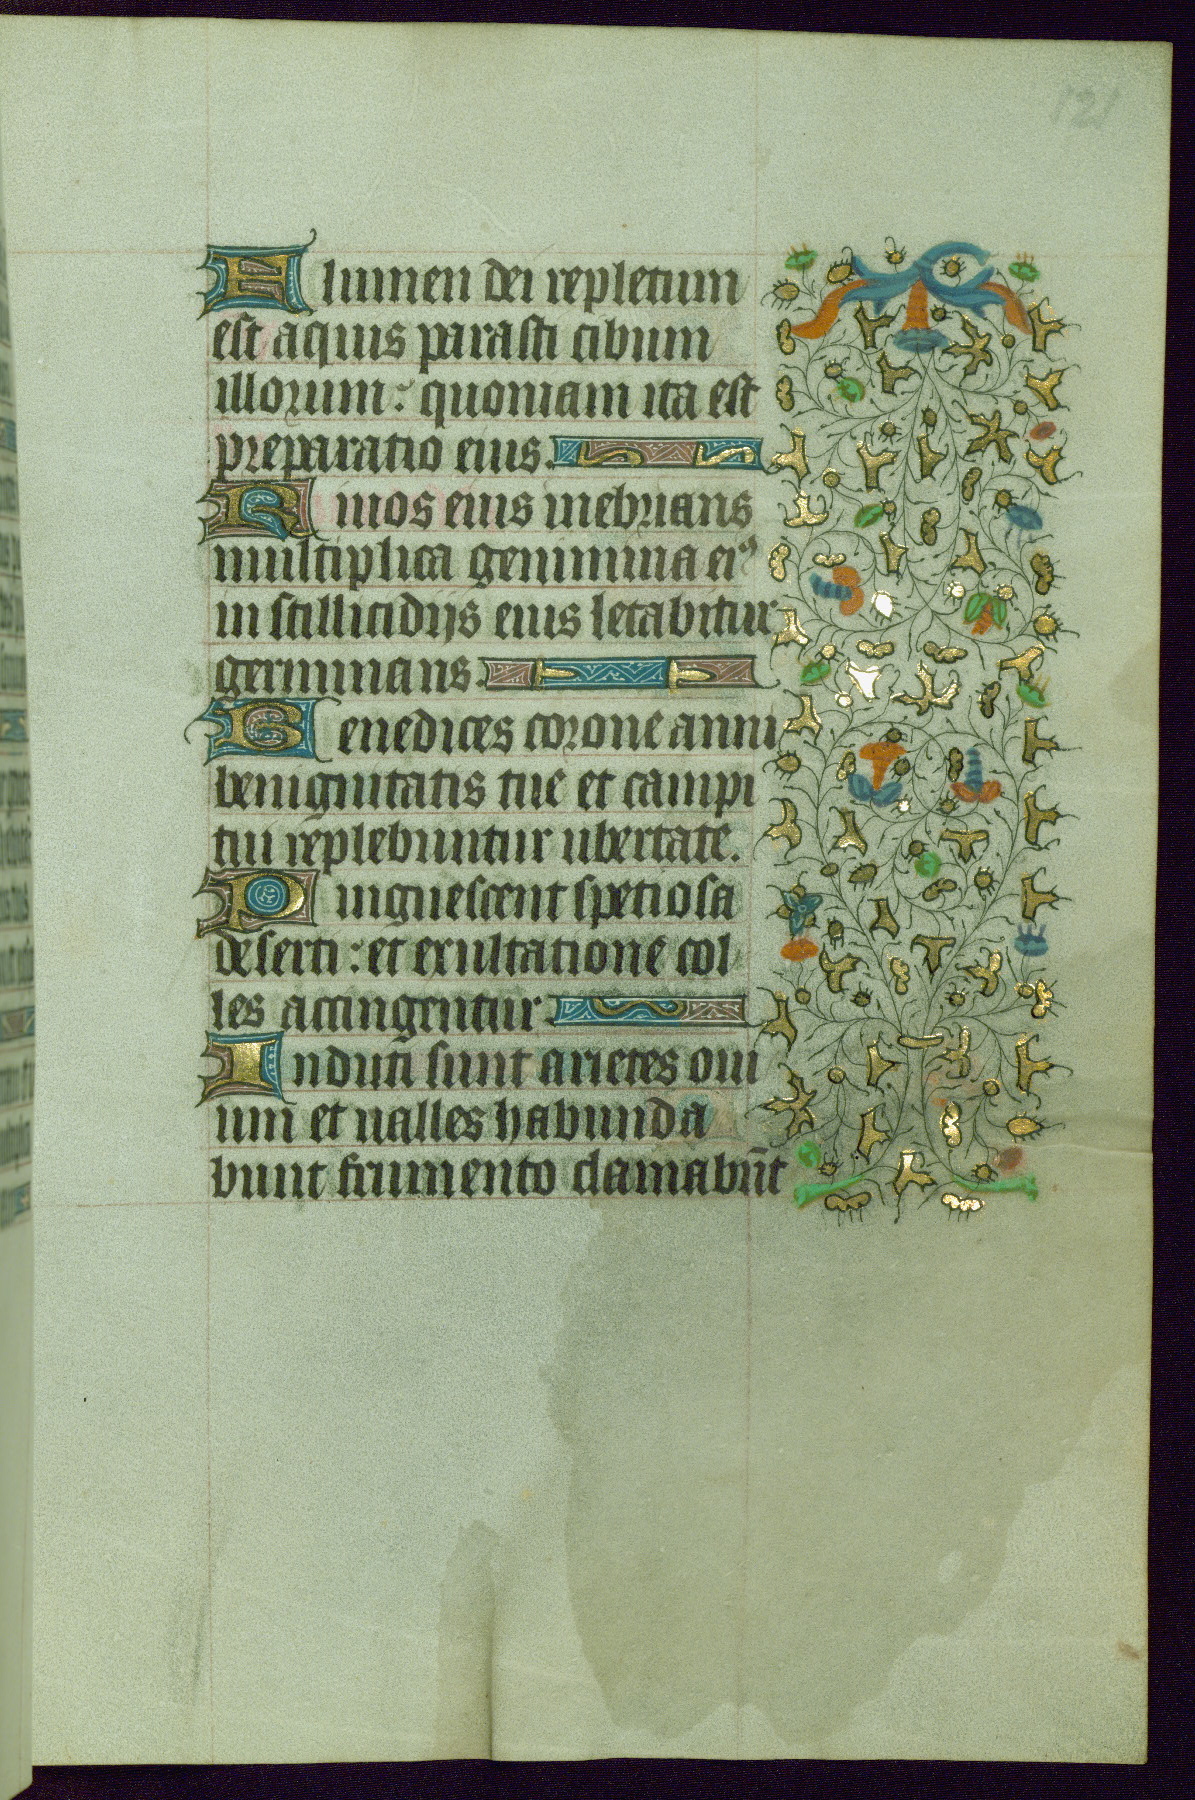 121
Flumen dei repletum
est aquis parasti cibum
illorum: quoniam ita est
preparatio eius.
Riuos eius inebrians
multiplica genimina ei⁹
in stillicidijs eius letabitur
germinans.
Benedices corone anni
benignitatis tue et campi
tui replebuntur ubertate.
Pinguescent spetiosa
deserti: et exultatione col
les accingentur.
Induti sunt arietes oui
um et ualles habunda
bunt frumento clamabūt